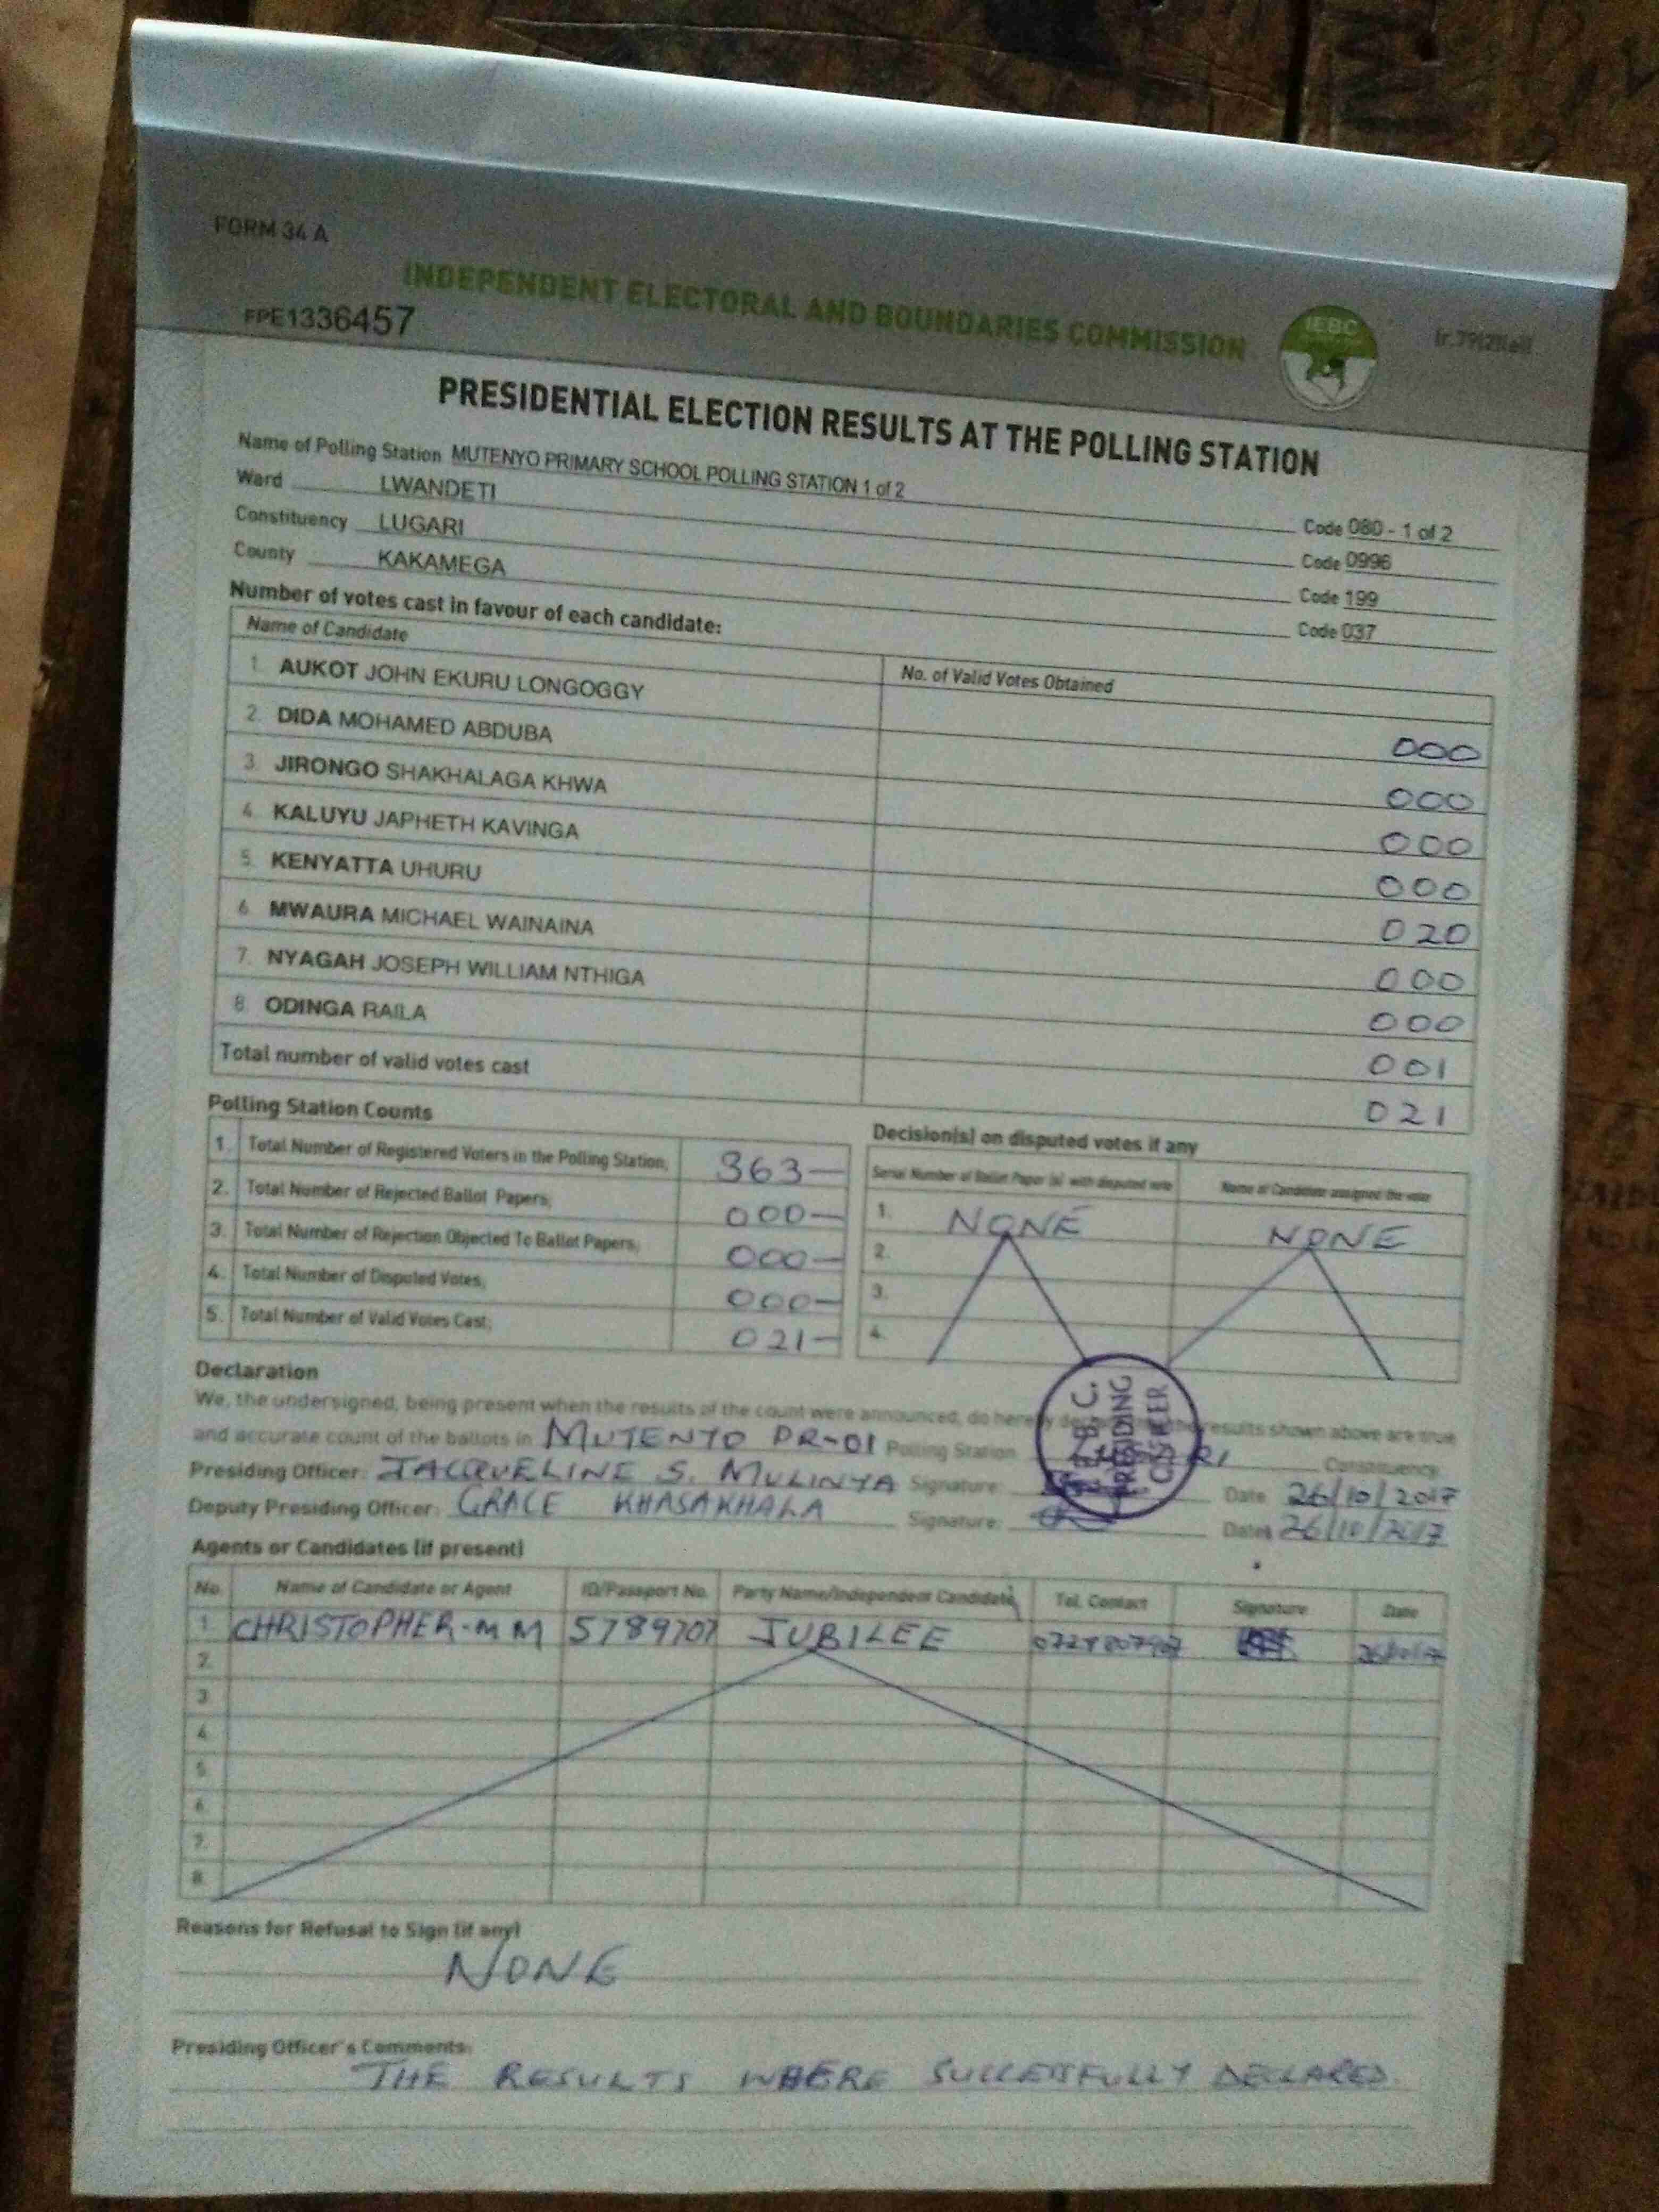 FORM 34 A
INDEPENDENT ELECTORAL AND BOUNDARIES COMMISSION
IEBC
FPE1336457
PRESIDENTIAL ELECTION RESULTS AT THE POLLING STATION
Name of Polling Station MUTENYO PRIMARY SCHOOL POLLING STATION 1 of 2 Code 080 - 1 of 2
Ward LWANDETI Code 0996
Constituency LUGARI Code 199
County KAKAMEGA Code 037
Number of votes cast in favour of each candidate:
Name of Candidate No. of Valid Votes Obtained
1. AUKOT JOHN EKURU LONGOGGY 000
2. DIDA MOHAMED ABDUBA 000
3. JIRONGO SHAKHALAGA KHWA 000
4. KALUYU JAPHETH KAVINGA 000
5. KENYATTA UHURU 020
6. MWAURA MICHAEL WAINAINA 000
7. NYAGAH JOSEPH WILLIAM NTHIGA 000
8. ODINGA RAILA 001
Total number of valid votes cast 021
Polling Station Counts
1. Total Number of Registered Voters in the Polling Station; 363—
2. Total Number of Rejected Ballot Papers; 000—
3. Total Number of Rejection Objected To Ballot Papers; 000—
4. Total Number of Disputed Votes; 000—
5. Total Number of Valid Votes Cast; 021—
Decision(s) on disputed votes if any
Serial Number of Ballot Paper (s) with disputed vote Name of Candidate assigned the vote
1. NONE NONE
2.
3.
4.
Declaration
We, the undersigned, being present when the results of the count were announced, do hereby the results shown above are true
and accurate count of the ballots in MUTENYO PR-01 Polling Station Constituency
PRESIDING OFFICER
Presiding Officer: JACQUELINE S. MULINYA Signature: Date 26/10/2017
Deputy Presiding Officer: GRACE KHASAKHALA Signature: Date 26/10/2017
Agents or Candidates (if present)
No. Name of Candidate or Agent ID/Passport No. Party Name/Independent Candidate Tel. Contact Signature Date
1. CHRISTOPHER-M M 5789707 JUBILEE 26/10/17
2.
3.
4.
5.
6.
7.
8.
Reasons for Refusal to Sign (if any)
NONE
Presiding Officer's Comments:
THE RESULTS WHERE SUCCESSFULLY DECLARED.